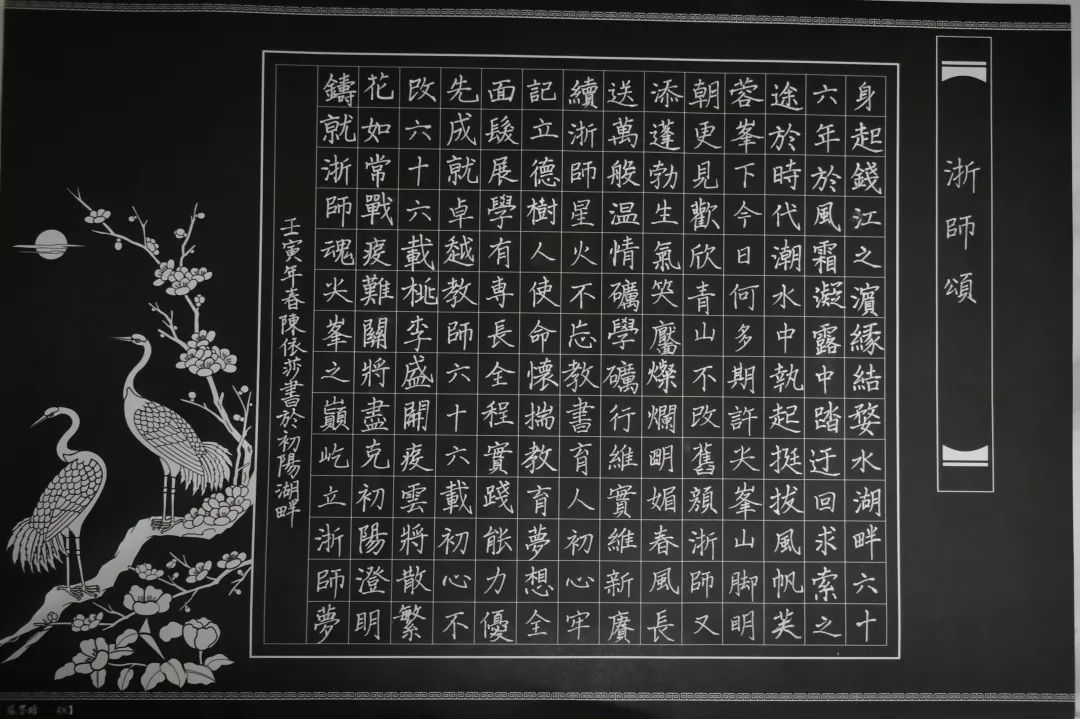 浙師頌
身起錢江之濵緣結婺水湖畔六十
六年於風霜凝露中踏迂回求索之
途於時代潮水中執起挺拔風帆芙
蓉峯下今日何多期許尖峯山脚明
朝更見歡欣青山不改舊顔浙師又
添蓬勃生氣笑靨燦爛明媚春風長
送萬般温情礪學礪行維實維新賡
續浙師星火不忘教書育人初心牢
記立德樹人使命懷揣教育夢想全
面髮展學有専長全程實踐能力優
先成就卓越教師六十六載初心不
改六十六載桃李盛開疫雲將散繁
花如常戰疫難關將盡克初陽澄明
鑄就浙師魂尖峯之巔屹立浙師夢
壬寅年春陳依莎書於初陽湖畔